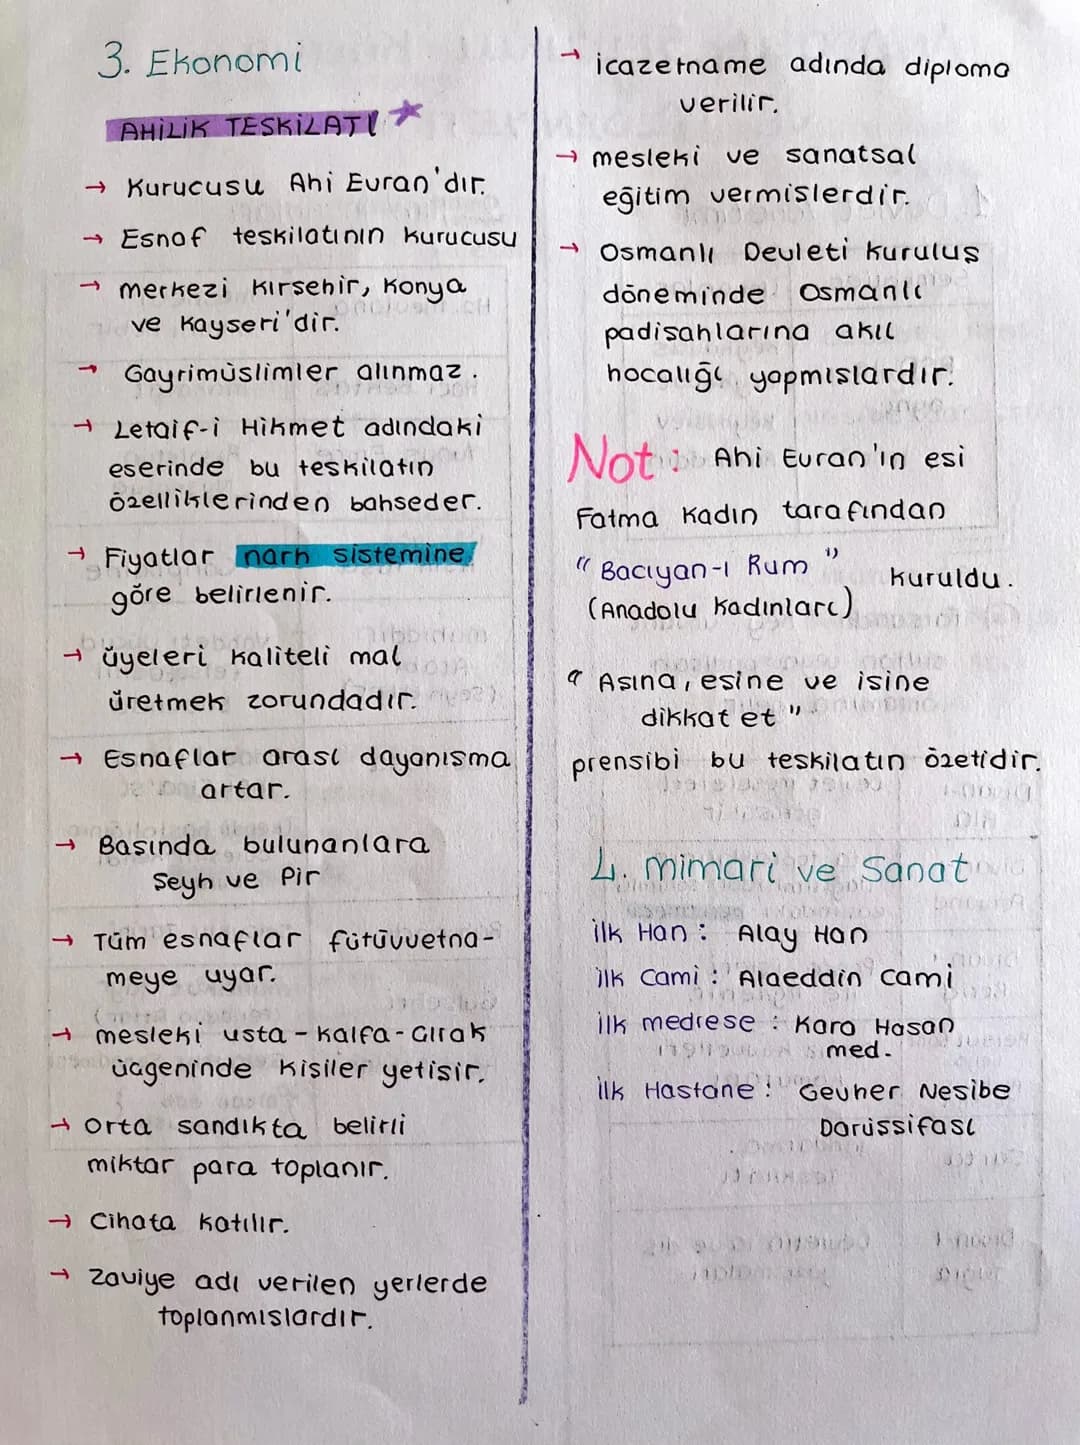 3. Ekonomi
AHİLİK TESKİLATI
→ Kurucusu Ahi Evran'dır.
→ Esnaf teskilatının kurucusu
→ merkezi Kırsehir, Konya
ve Kayseri'dir.
→ Gayrimüslimler alınmaz.
→ Letaif-i Hikmet adındaki
eserinde bu teskilatın
özelliklerinden bahseder.
→ Fiyatlar narh sistemine
göre belirlenir.
→ üyeleri kaliteli mal
üretmek zorundadır.
→ Esnaflar arası dayanısma
artar.
→ Basında bulunanlara
Seyh ve Pir
→ Tüm esnaflar fütüvvetna-
meye uyar.
→ mesleki usta-kalfa-Cırak
ücgeninde kisiler yetisir.
→ Orta sandıkta belirli
miktar para toplanır.
→ Cihata katılır.
→ Zaviye adı verilen yerlerde
toplanmıslardır.
→ icazetname adında diploma
verilir.
→ mesleki ve sanatsal
eğitim vermislerdir.
→ Osmanlı Devleti kuruluş
döneminde Osmanlı
padisahlarına akıl
hocalığı yapmıslardır.
Not: Ahi Evran'ın esi
Fatma Kadın tarafından
"Bacıyan-ı Rum" kuruldu.
(Anadolu Kadınları)
"Asına, esine ve isine
dikkat et"
prensibi bu teskilatın özetidir.
4. mimari ve Sanat
ilk Han: Alay Han
ilk Cami: Alaeddin cami
ilk medrese: Kara Hasan
med.
ilk Hastane: Gevher Nesibe
Darüssifası